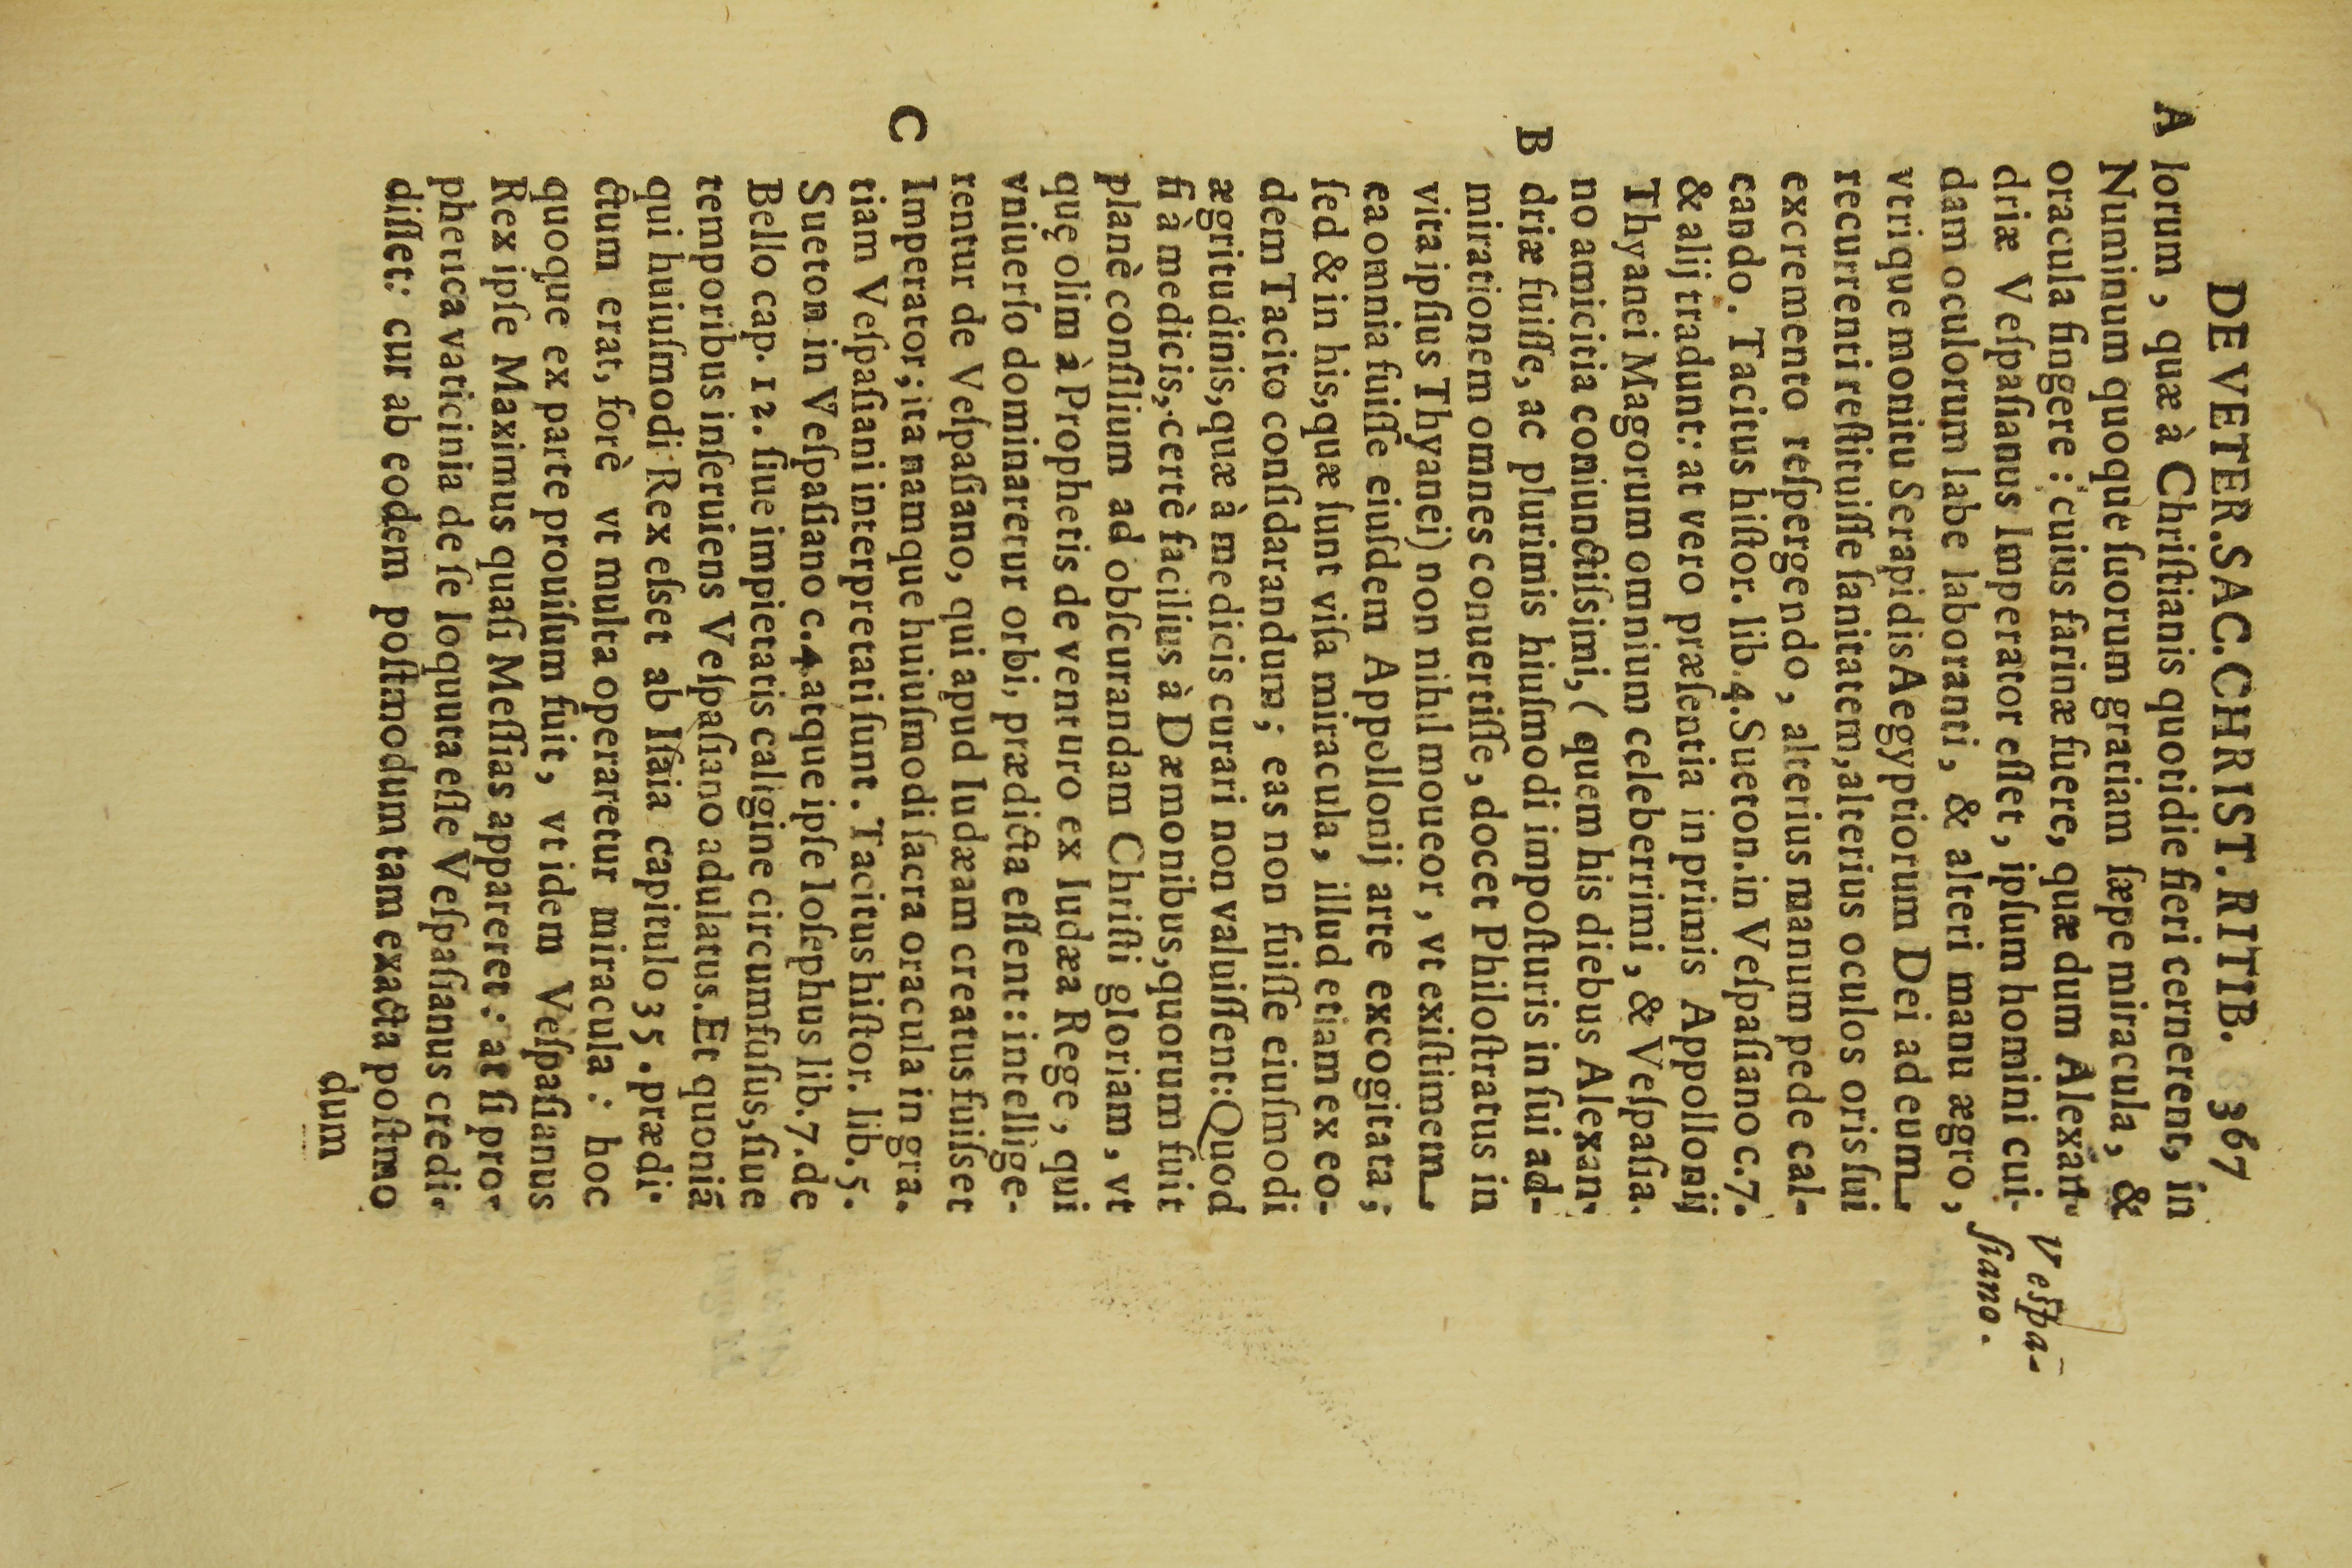 DE VETER. SAC. CHRIST. RITIB. 367
A lorum, quæ à Chriſtianis quotidie fieri cernerent, in
Numinum quoque ſuorum gratiam ſæpe miracula, &
oracula fingere: cuius farinæ fuere, quæ dum Alexan-
driæ Veſpaſianus Imperator eſſet, ipſum homini cui-
Veſpa-
ſiano.
dam oculorum labe laboranti, & alteri manu ægro,
vtrique monitu Serapidis Aegyptiorum Dei ad eum
recurrenti reſtituiſſe ſanitatem, alterius oculos oris ſui
excremento reſpergendo, alterius manum pede cal-
cando. Tacitus hiſtor. lib. 4. Sueton. in Veſpaſiano c. 7.
& alij tradunt: at vero præſentia in primis Appollonij
Thyanei Magorum omnium celeberrimi, & Veſpaſia-
no amicitia coniunctiſsimi, ( quem his diebus Alexan-
B driæ fuiſſe, ac plurimis hiuſmodi impoſturis in ſui ad-
mirationem omnes conuertiſſe, docet Philoſtratus in
vita ipſius Thyanei) non nihil moueor, vt exiſtimem
ea omnia fuiſſe eiuſdem Appollonij arte excogitata;
ſed & in his, quæ ſunt viſa miracula, illud etiam ex eo-
dem Tacito conſidarandum; eas non fuiſſe eiuſmodi
ægritudinis, quæ à medicis curari non valuiſſent: Quod
ſi à medicis, certè facilius à Dæmonibus, quorum fuit
planè conſilium ad obſcurandam Chriſti gloriam, vt
quę olim à Prophetis de venturo ex Iudæa Rege, qui
vniuerſo dominaretur orbi, prædicta eſſent: intellige-
rentur de Veſpaſiano, qui apud Iudæam creatus fuiſset
C Imperator; ita namque huiuſmodi ſacra oracula in gra-
tiam Veſpaſiani interpretati ſunt. Tacitus hiſtor. lib. 5.
Sueton. in Veſpaſiano c. 4 atque ipſe Ioſephus lib. 7. de
Bello cap. 12. ſiue impietatis caligine circumfuſus, ſiue
temporibus inſeruiens Veſpaſiano adulatus. Et quoniã
qui huiuſmodi Rex eſset ab Iſaia capitulo 35. prædi-
ctum erat, forè vt multa operaretur miracula: hoc
quoque ex parte prouiſum fuit, vt idem Veſpaſianus
Rex ipſe Maximus quaſi Meſſias appareret: at ſi pro-
phetica vaticinia de ſe loquuta eſſe Veſpaſianus credi-
diſſet: cur ab eodem poſtmodum tam exacta poſtmo
dum